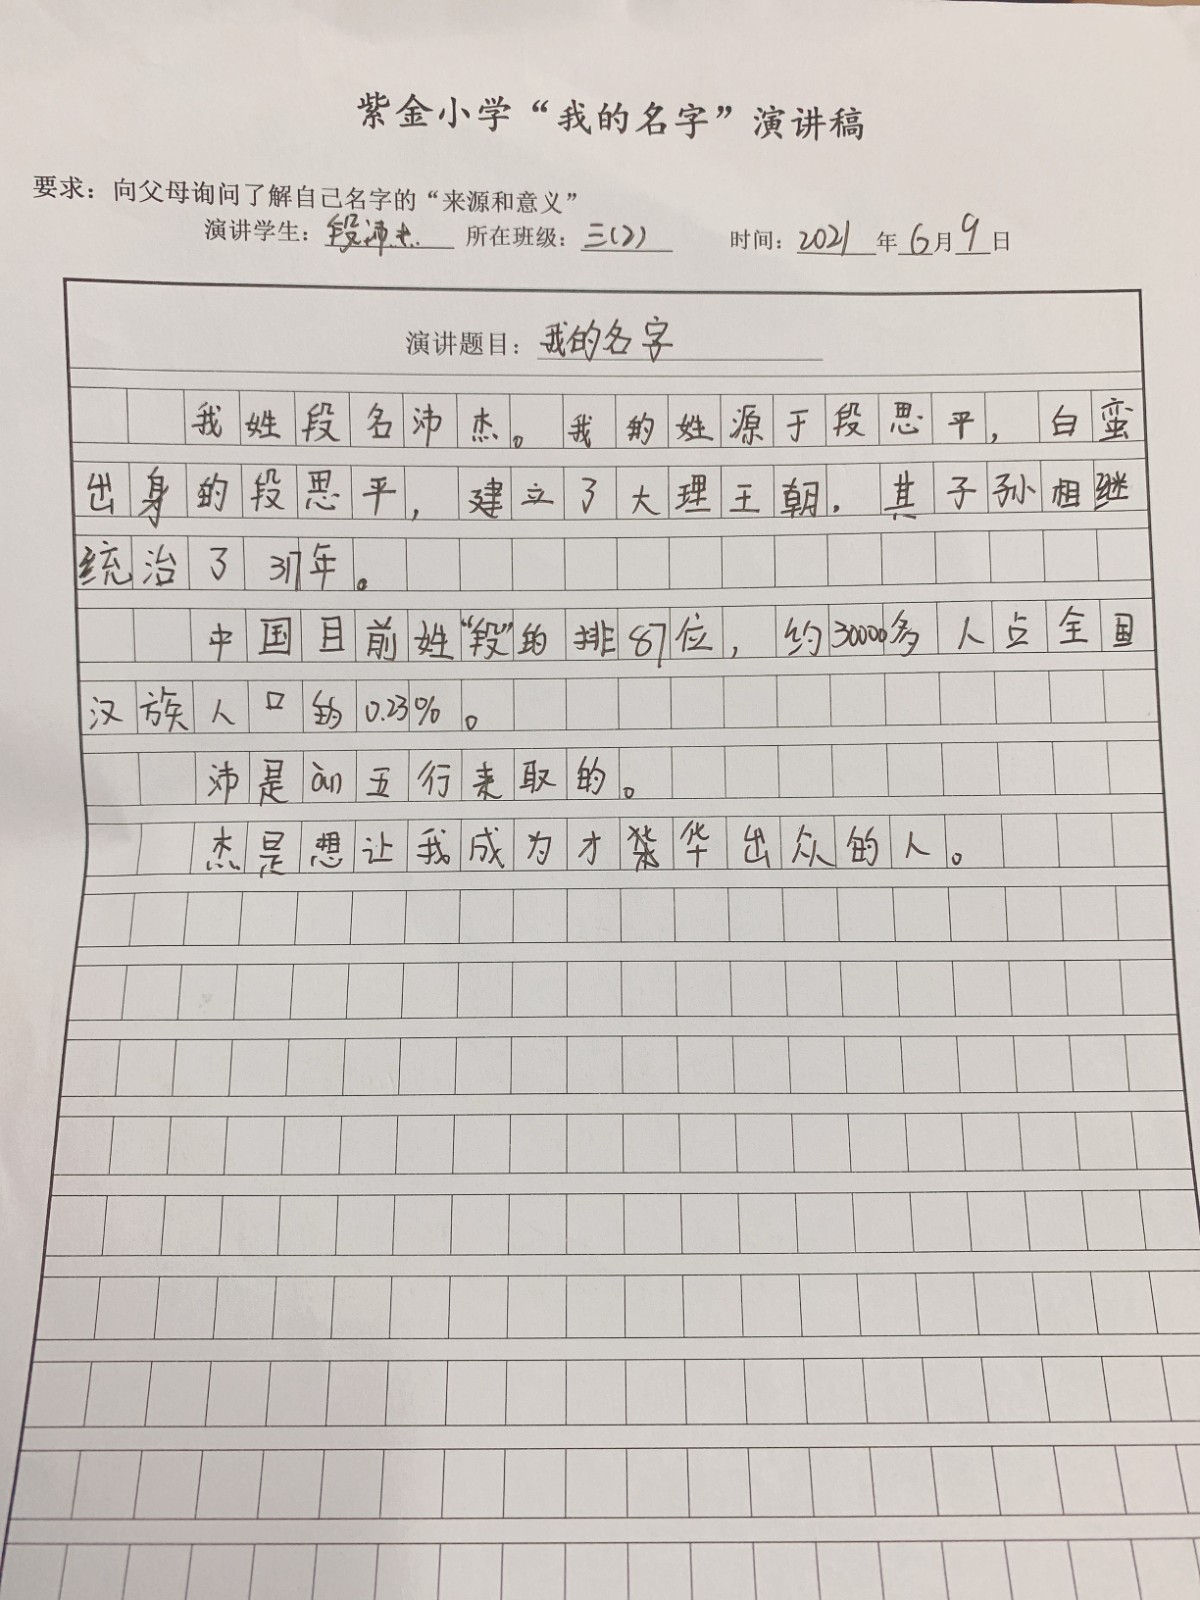 紫金小学“我的名字”演讲稿
要求：向父母询问了解自己名字的“来源和意义”
演讲学生：段沛杰 所在班级：三(2) 时间：2021年6月9日
演讲题目：我的名字
我姓段名沛杰。我的姓源于段思平，白蛮
出身的段思平，建立了大理王朝．其子孙相继
统治了317年。
中国目前姓“段”的排87位，约30000多人占全国
汉族人口的0.23%。
沛是àn五行来取的。
杰是想让我成为才桀华出众的人。